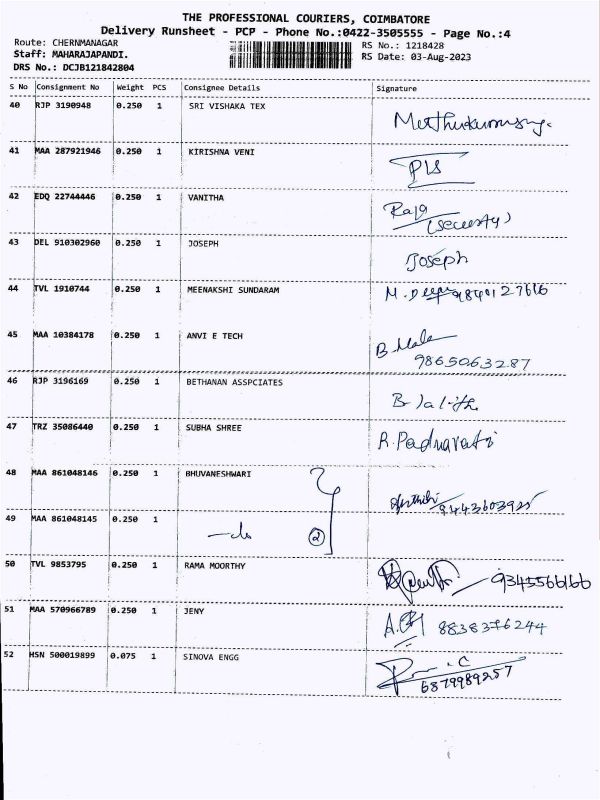 THE PROFESSIONAL COURIERS, COIMBATORE
Delivery Runsheet - PCP - Phone No.:0422-3505555 - Page No.:4
Route: CHERNMANAGAR RS No.: 1218428
Staff: MAHARAJAPANDI. RS Date: 03-Aug-2023
DRS No.: DCJB121842804
S No Consignment No Weight PCS Consignee Details Signature
40 RJP 3190948 0.250 1 SRI VISHAKA TEX
41 MAA 287921946 0.250 1 KIRISHNA VENI
42 EDQ 22744446 0.250 1 VANITHA Raja
(Security)
43 DEL 910302960 0.250 1 JOSEPH Joseph
44 TVL 1910744 0.250 1 MEENAKSHI SUNDARAM M. Deepa 9840127616
45 MAA 10384178 0.250 1 ANVI E TECH B. Mala
9865063287
46 RJP 3196169 0.250 1 BETHANAN ASSPCIATES B. Lalitha
47 TRZ 35086440 0.250 1 SUBHA SHREE R. Padmavati
48 MAA 861048146 0.250 1 BHUVANESHWARI 9443603925
49 MAA 861048145 0.250 1 -do 2
50 TVL 9853795 0.250 1 RAMA MOORTHY 9345566166
51 MAA 570966789 0.250 1 JENY 8838376244
52 HSN 500019899 0.075 1 SINOVA ENGG
6879989257